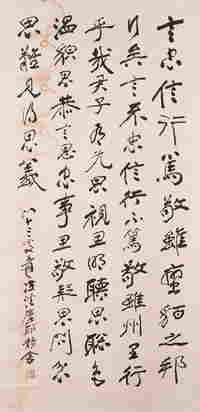 言忠信行篤敬雖蠻貊之邦
行矣言不忠信行不篤敬雖州里行
乎哉君子有九思視思明聽思聰色
溫貌思恭言思忠事思敬疑思問忿
思難見得思義
八十三叟